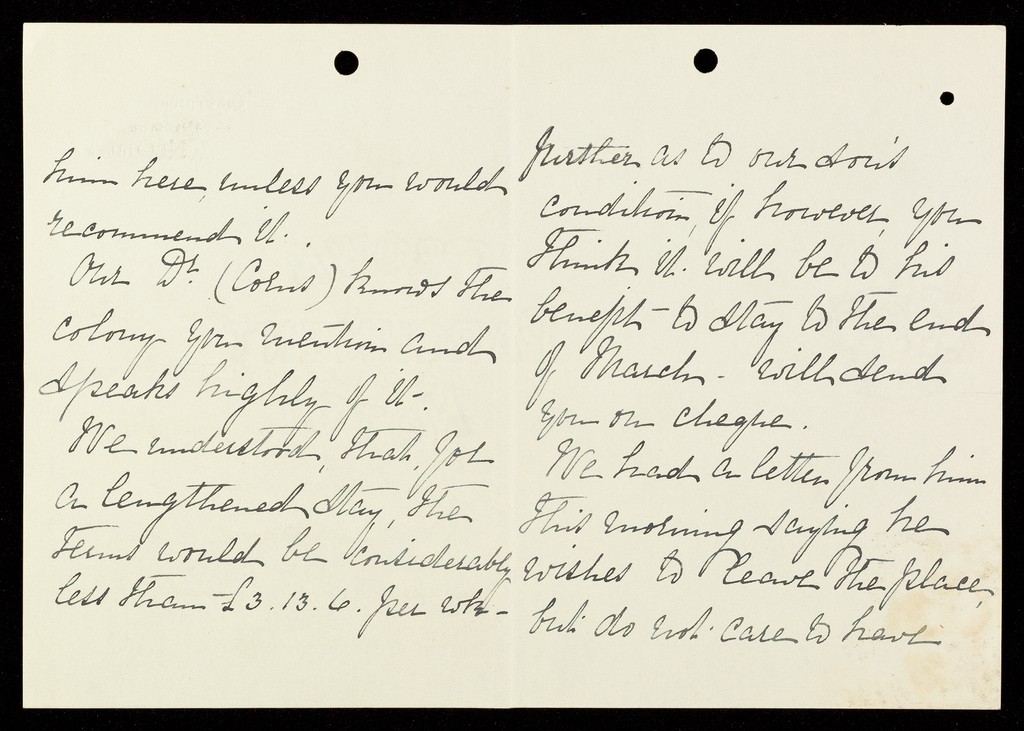 him here, unless you would
recommend it.
Our Dr. (Corns) knows the
colony you mention and
speaks highly of it.
We understood, that, for
a lengthened stay, the
terms would be considerably
less than £3.13.6. per wk-
further as to our son's
condition, if however, you
think it will be to his
benefit - to stay to the end
of March - will send
you on cheque.
We had a letter from him
this morning saying he
wishes to leave the place,
but do not care to have